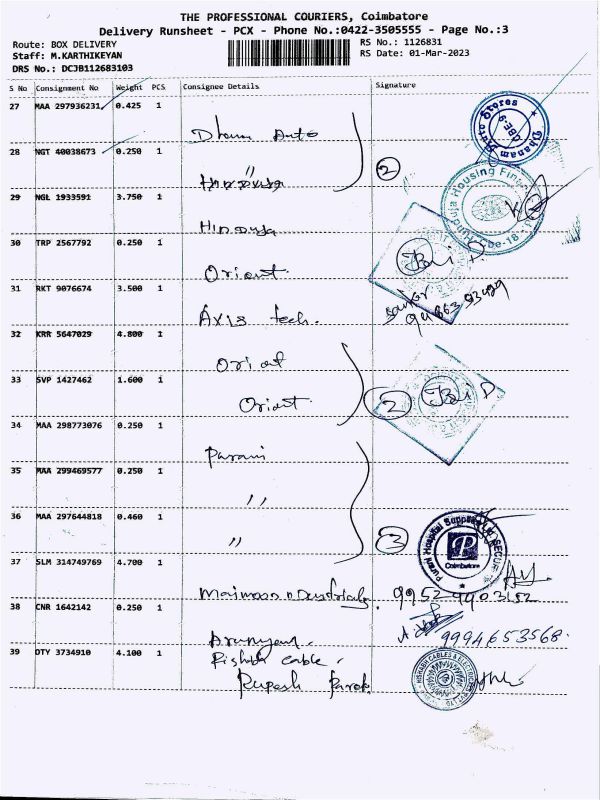 THE PROFESSIONAL COURIERS, Coimbatore
Delivery Runsheet - PCX - Phone No.:0422-3505555 - Page No.:3
Route: BOX DELIVERY
RS No.: 1126831
Staff: M.KARTHIKEYAN
RS Date: 01-Mar-2023
DRS No.: DCJB112683103
S No Consignment No Weight PCS Consignee Details Signature
27 MAA 297936231 0.425 1
28 NGT 40038673 0.250 1
29 NGL 1933591 3.750 1
Hinduja
30 TRP 2567792 0.250 1
Orient
31 RKT 9076674 3.500 1
Axis tech.
32 KRR 5647029 4.800 1
33 SVP 1427462 1.600 1
Orient
34 MAA 298773076 0.250 1
35 MAA 299469577 0.250 1
"
36 MAA 297644818 0.460 1
"
37 SLM 314749769 4.700 1
38 CNR 1642142 0.250 1
39 OTY 3734910 4.100 1
Rishbh cable.
Rupesh Parek
Dhanam Auto Stores
CBE-9
2
2
3
Coimbatore
9994653568.